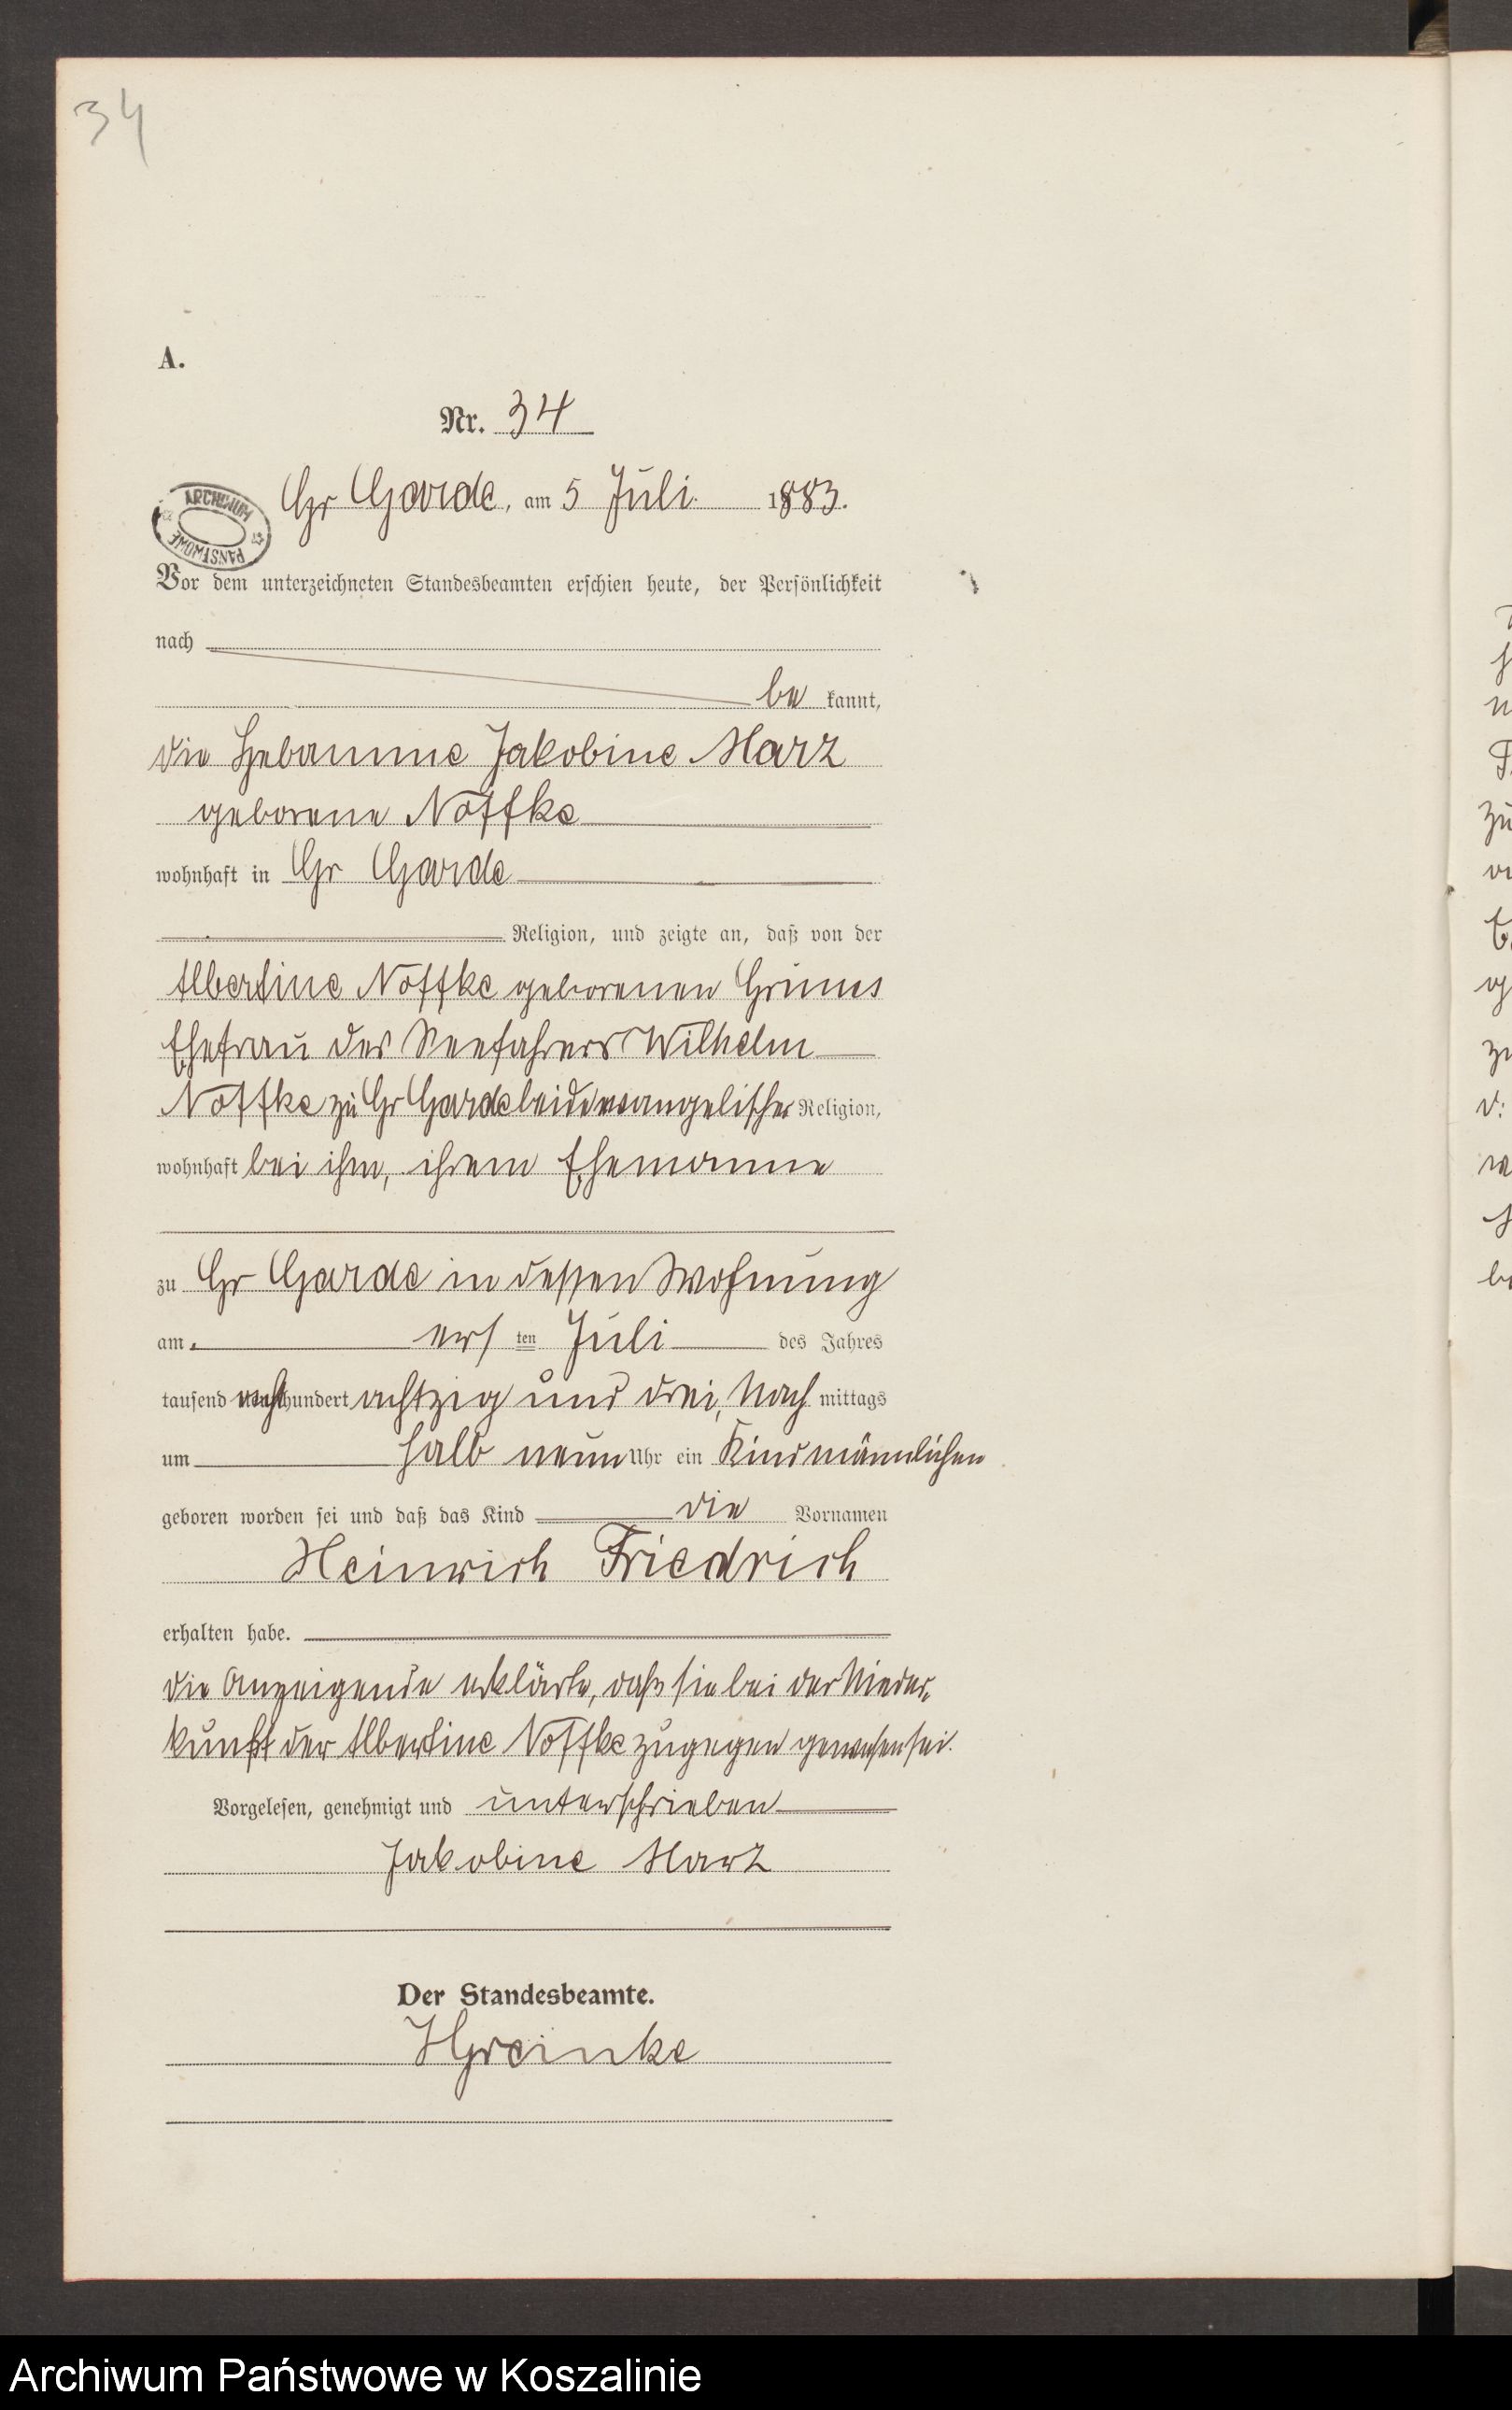 34
A.
Nr. 34
Gr Garde, am 5 Juli 1883.
ARCHIWUM PAŃSTWOWE
Vor dem unterzeichneten Standesbeamten erschien heute, der Persönlichkeit
nach
be kannt,
die Hebamme Jakobine Marz
geborene Noffke
wohnhaft in Gr Garde
Religion, und zeigte an, daß von der
Albertine Noffke geborenen Grimes
Ehefrau des Seefahrers Wilhelm
Noffke zu Gr Garde beide evangelischer Religion,
wohnhaft bei ihm, ihrem Ehemanne
zu Gr Garde in dessen Wohnung
am ers ten Juli des Jahres
tausend acht hundert achtzig und drei, Nach mittags
um halb neun Uhr ein Kind männlichen
geboren worden sei und daß das Kind die Vornamen
Heinrich Friedrich
erhalten habe.
die Anzeigende erklärte, daß sie bei der Nieder-
kunft der Albertine Noffke zugegen gewesen sei.
Vorgelesen, genehmigt und unterschrieben
Jakobine Marz
Der Standesbeamte.
HGreinke
Archiwum Państwowe w Koszalinie